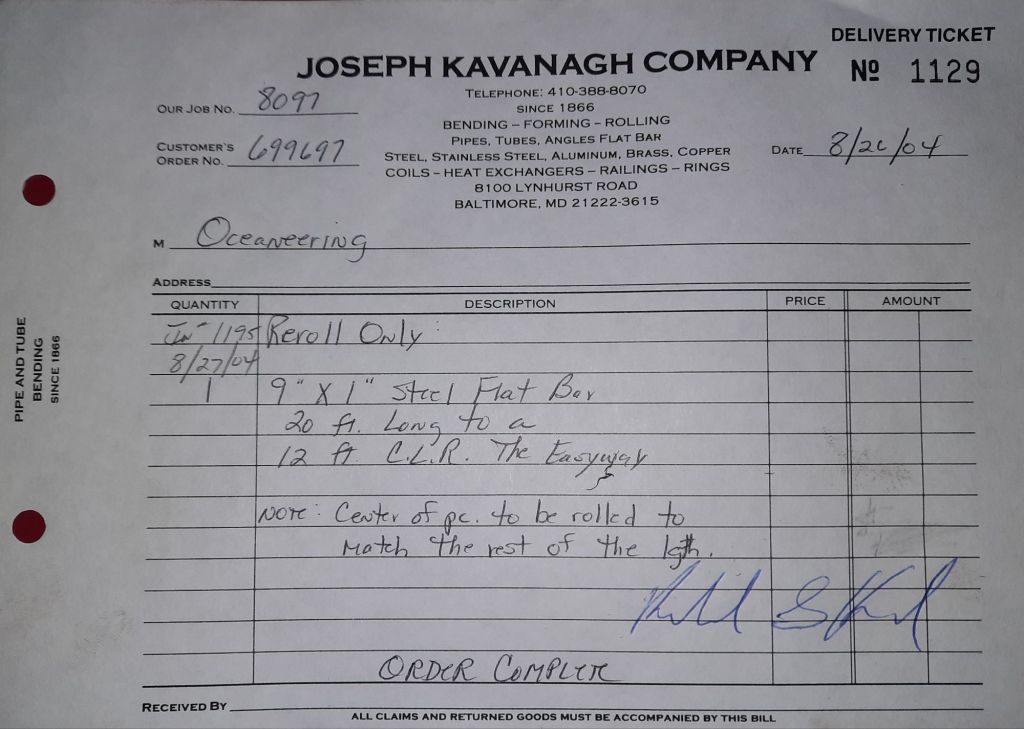 DELIVERY TICKET
JOSEPH KAVANAGH COMPANY
Nº 1129
TELEPHONE: 410-388-8070
SINCE 1866
BENDING – FORMING – ROLLING
PIPES, TUBES, ANGLES FLAT BAR
STEEL, STAINLESS STEEL, ALUMINUM, BRASS, COPPER
COILS – HEAT EXCHANGERS – RAILINGS – RINGS
8100 LYNHURST ROAD
BALTIMORE, MD 21222-3615
OUR JOB NO. 8097
CUSTOMER'S
ORDER NO. 699697
DATE 8/26/04
M Oceaneering
ADDRESS
QUANTITY DESCRIPTION PRICE AMOUNT
In- 1195 Reroll Only:
8/27/04
1 9" X 1" Steel Flat Bar
20 ft. Long to a
12 ft C.L.R. The Easyway
NOTE: Center of pc. to be rolled to
Match the rest of the lgth.
ORDER COMPLETE
RECEIVED BY
ALL CLAIMS AND RETURNED GOODS MUST BE ACCOMPANIED BY THIS BILL
PIPE AND TUBE
BENDING
SINCE 1866